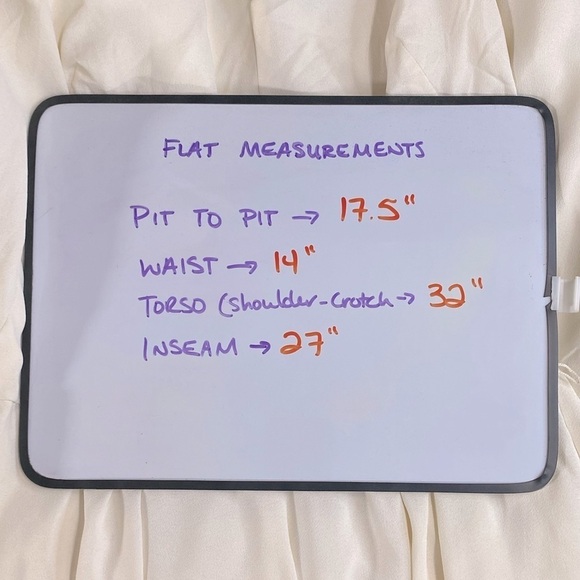 FLAT MEASUREMENTS
PIT TO PIT → 17.5"
WAIST → 14"
TORSO (shoulder-crotch → 32"
INSEAM → 27"